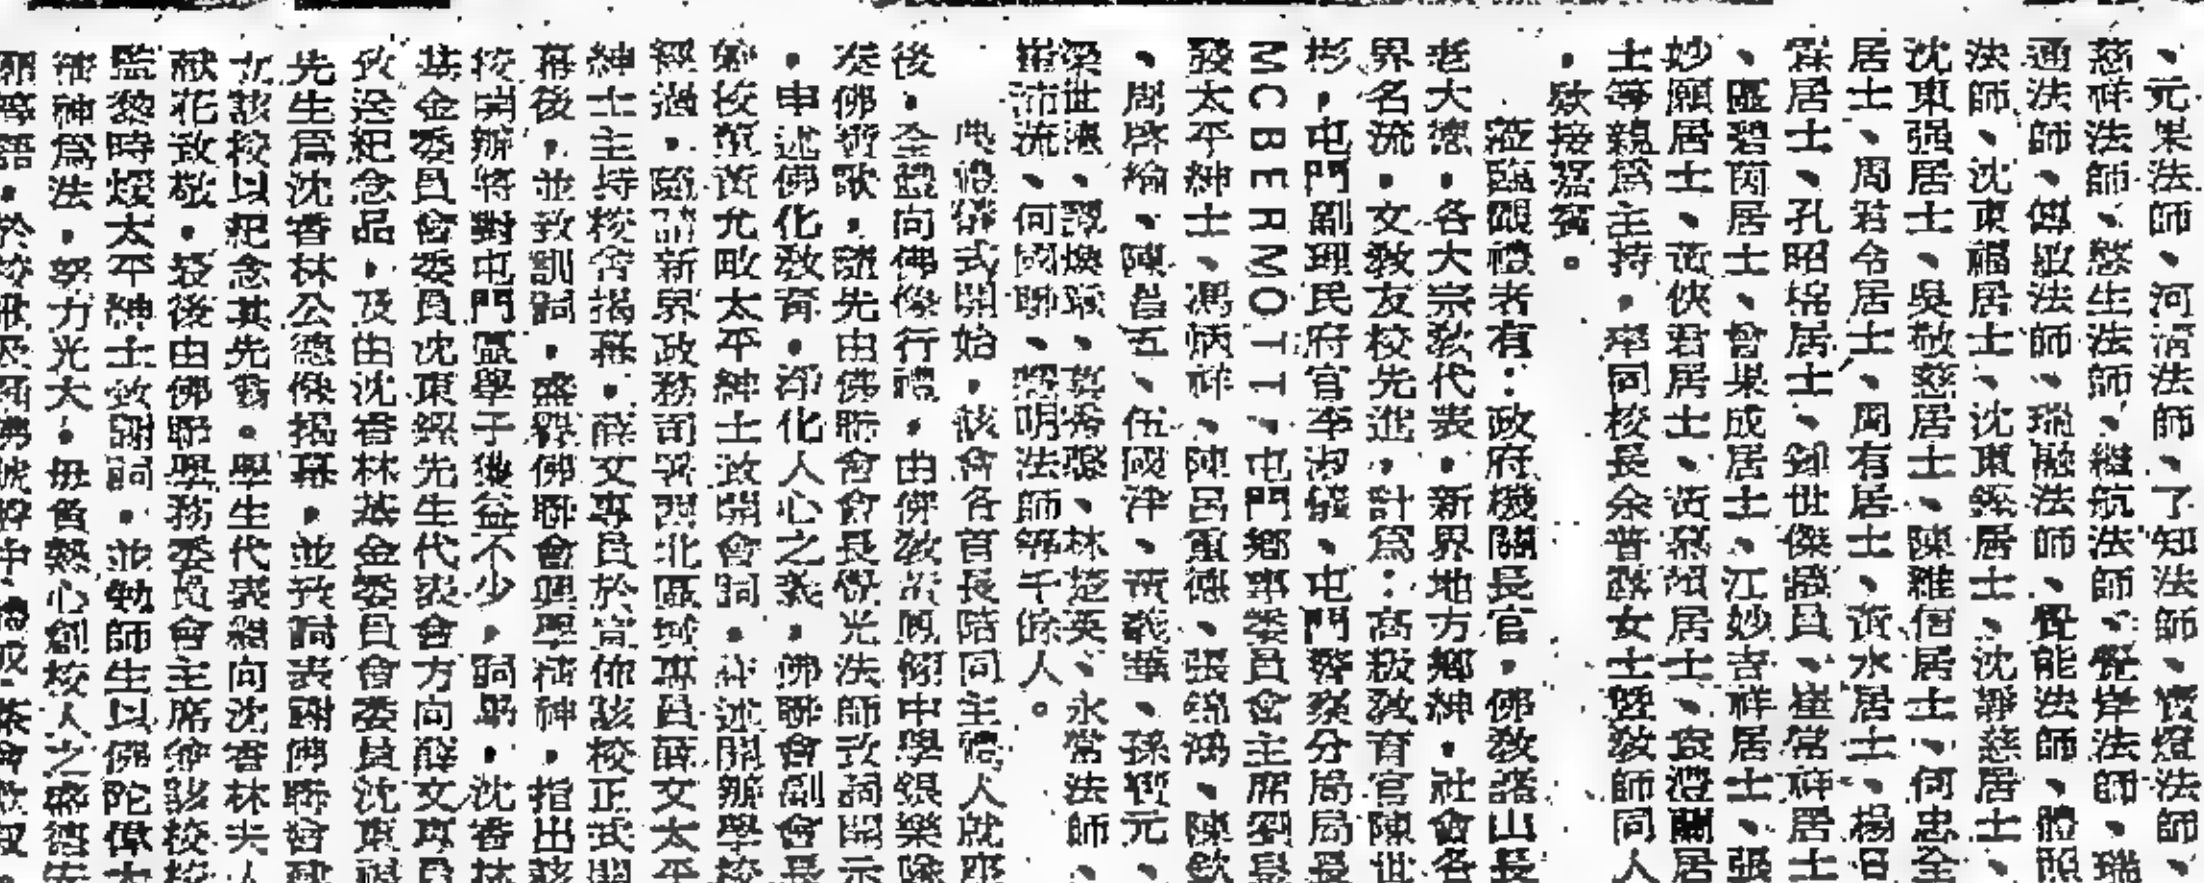 、元果法師、河清法師、了知法師、寶燈法師、
慈祥法師、慈生法師、繼航法師、覺岸法師、瑞
通法師、傳敬法師、瑞融法師、覺能法師、體照
法師、沈東福居士、沈東錫居士、沈靜慈居士、
沈東强居士、吳敬慈居士、陳維信居士、何忠全
居士、周君令居士、周有居士、黃水居士、楊日
霖居士、孔昭棉居士、鄧世傑議員、崔常禪居士
、區碧茵居士、曾果成居士、江妙吉祥居士、張
妙願居士、黃俠君居士、居士、袁澄蘭居
士等親爲主持，率同校長余普馥女士暨敎師同人
，欵接嘉賓。
蒞臨觀禮者有：政府機關長官，佛敎諸山長
老大德，各大宗敎代表，新界地方鄉紳，社會各
界名流，文敎友校先進，計爲：高級敎育官陳世
彬，屯門副理民府官李淑儀、屯門警察分局局長
MCBERMOTT，屯門鄉事委員會主席劉
發太平紳士、馮炳祥、陳呂重德、張錦鴻、陳欽
、周啓綸、陳昌五、伍國津、黃義華、孫寶元、
梁世、煥、、林楚英、永常法師、
崔沛流、何國聯、明法師等千餘人。
典禮儀式開始，該會各首長陪同主禮人就座
後，全體向佛像行禮，由佛敎黃鳳翎中學銀樂隊
奏佛讚歌，隨先由佛聯會會長覺光法師致詞開示
，申述佛化敎育，淨化人心之義，佛聯會副會長
兼校董黃允畋太平紳士致開會詞，并述開辦學校
經過，隨請新界政務司署西北區域專員薛文太平
紳士主持校舍揭幕，薛文專員於宣佈該校正式開
幕後，並致訓詞，盛譽佛聯會興學精神，指出該
校開辦將對屯門區學子獲益不少，詞畢，沈香林
基金委員會委員沈東錫先生代表會方向薛文專員
致送紀念品，及由沈香林基金委員會委員沈東
先生爲沈香林公德像揭幕，並致詞表謝佛聯會
女該校以紀念其先翁。學生代表趨向沈香林夫人
献花致敬，最後由佛聯學務委員會主席兼該校校
監黎時煖太平紳士致謝詞，並勉師生以佛陀偉大
精神爲法，努力光大，毋負熱心創校人之